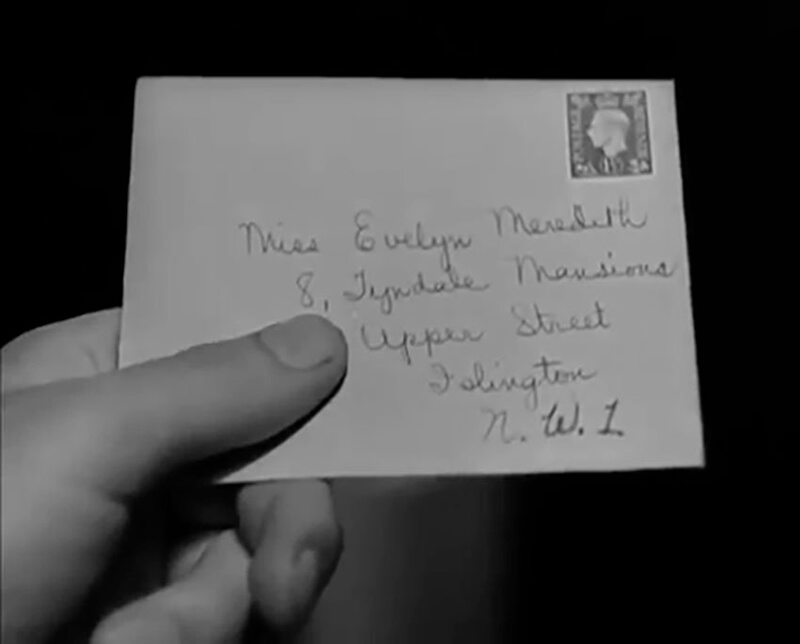 Miss Evelyn Meredith
8, Tyndale Mansions
Upper Street
Islington
N. W. 1